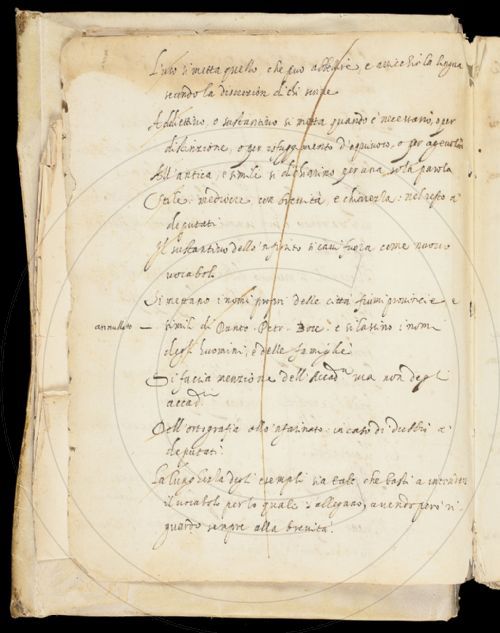 L'uso si metta quello, che può abbellire, e arricchir la lingua
secondo la discrezion di chi
Addiettivo, o sustantivo si metta quando è necessario, o per
distinzione, o per isfuggimento d'equivoco, o per agevolar
All'antica, e simili si dichiarino per una sola parola
Stile: mediocre, con brevità e chiarezza: nel resto a'
deputati.
Il sustantivo dello 'nfinito si cavi fuora come nuovo
vocabolo
Si mettano i nomi propri delle città fiumi provincie e
annullato — simili di Dante. Petr. Bocc. e si lascino i nomi
degli huomini, e delle famiglie
Si faccia menzione dell'Accad.a ma non degli
accad.ci
Dell'ortografia allo 'nfarinato: in caso di dubbi a'
deputati.
La lunghezza degli esempli sia tale che basti a intender
il vocabolo per lo quale s'allegano, avendo però ri-
guardo sempre alla brevità.